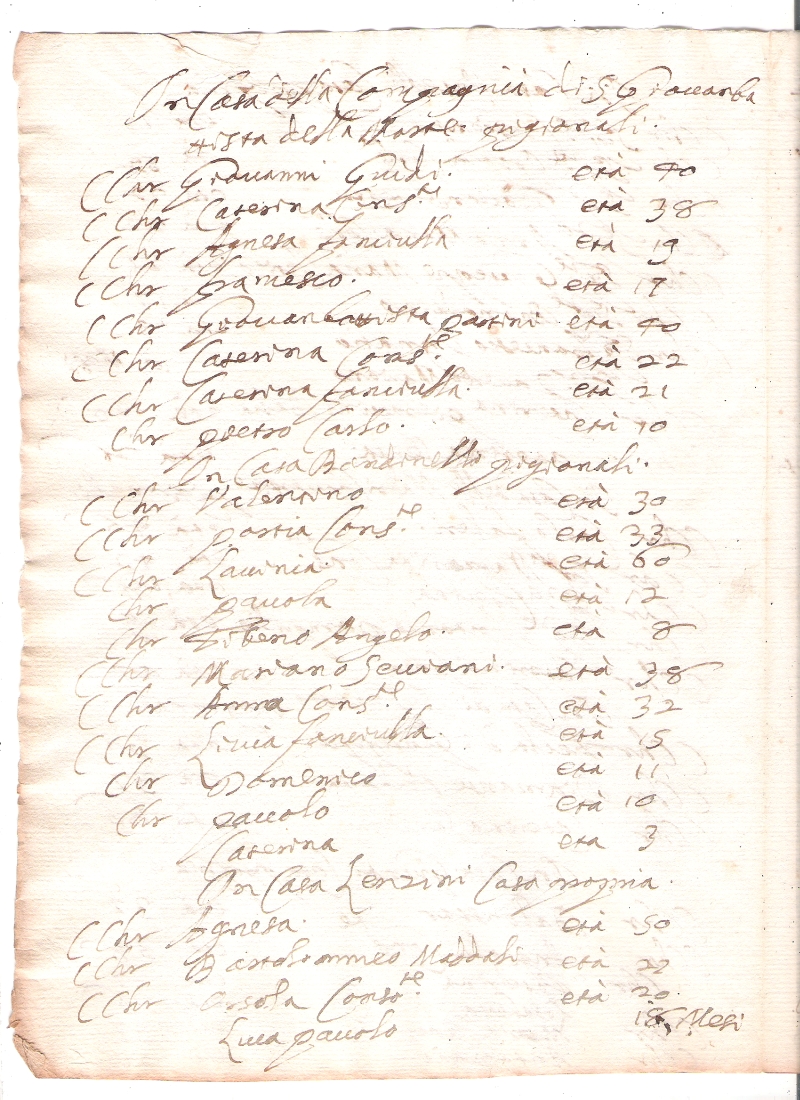 In Casa della Compagnia di S Giovanba
ttista della Morte pigionali.
C Chr Giovanni Guidi. età 40
C Chr Caterina Cons.te età 38
C Chr Agnesa fanciulla età 19
C Chr francesco. età 17
C Chr Giovanbattista partini età 40
C Chr Caterina Cons.te età 22
C Chr Caterina fanciulla. età 21
Chr pietro Carlo. età 10
In Casa Bandinelli pigionali.
C Chr Valentino età 30
C Chr portia Cons.te età 33
C Chr Lavinia. età 60
Chr pavola età 12
Chr Tiberio Angelo. eta 8
C Chr Mariano Seuiani. età 38
C Chr Anna Cons.te età 32
C Chr Livia fanciulla. età 15
Chr Domenico età 11
Chr pavolo età 10
Caterina eta 3
In Casa Lenzini Casa propria.
C Chr Agnesa. età 50
C Chr Bartolommeo Maddali età 27
C Chr Orsola Conso.te età 20
Luca pavolo 18 Mesi